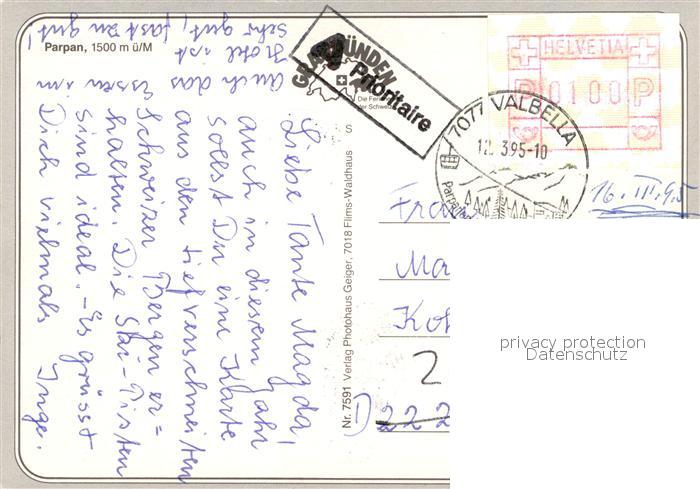 Parpan, 1500 m ü/M
Liebe Tante Magda,
auch in diesem Jahr
sollst Du eine Karte
aus den tiefverschneiten
Schweizer Bergen er=
halten. Die Ski-Pisten
sind ideal. - Es grüsst
Dich vielmals Inge.
Auch das Essen im
Hotel ist
sehr gut, fast zu gut!
Nr. 7591 Verlag Photohaus Geiger, 7018 Flims-Waldhaus
GRAUBÜNDEN
Die Ferien
der Schweiz
Prioritaire
HELVETIA
P 0100 P
7077 VALBELLA
12. 3.95-10
Parpan
16. III. 95
Frau
Ma
2
D 222
privacy protection
Datenschutz